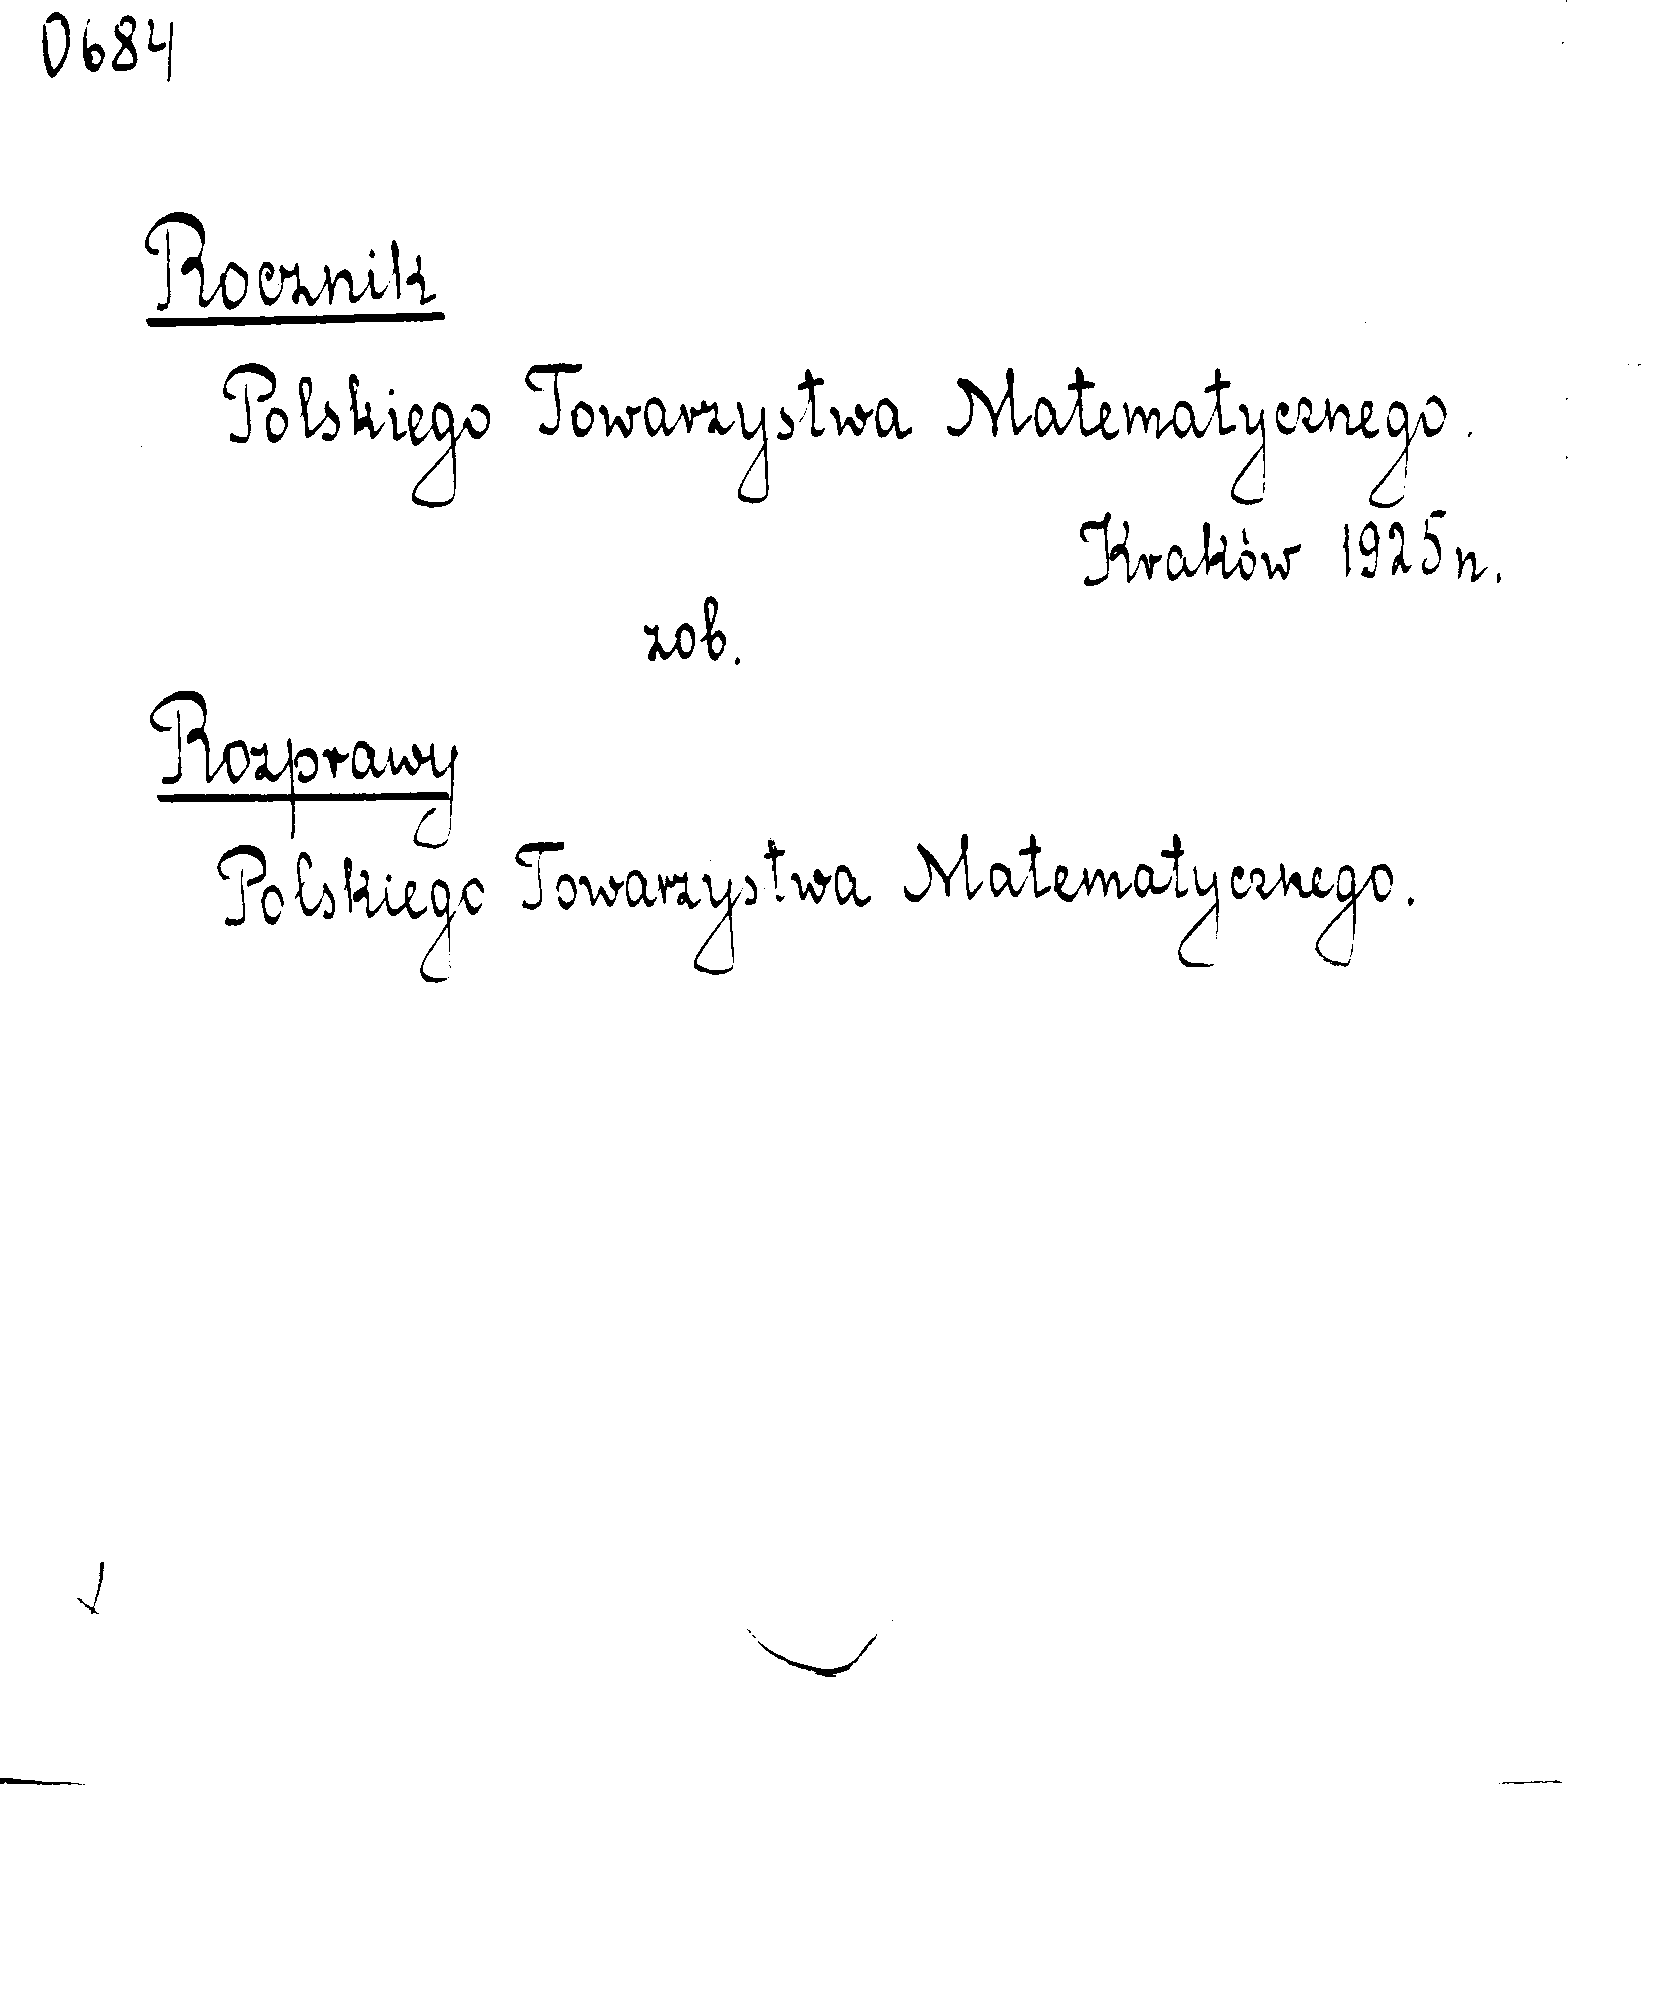 0684
Rocznik
Polskiego Towarzystwa Matematycznego.
Kraków 1925 n.
zob.
Rozprawy
Polskiego Towarzystwa Matematycznego.